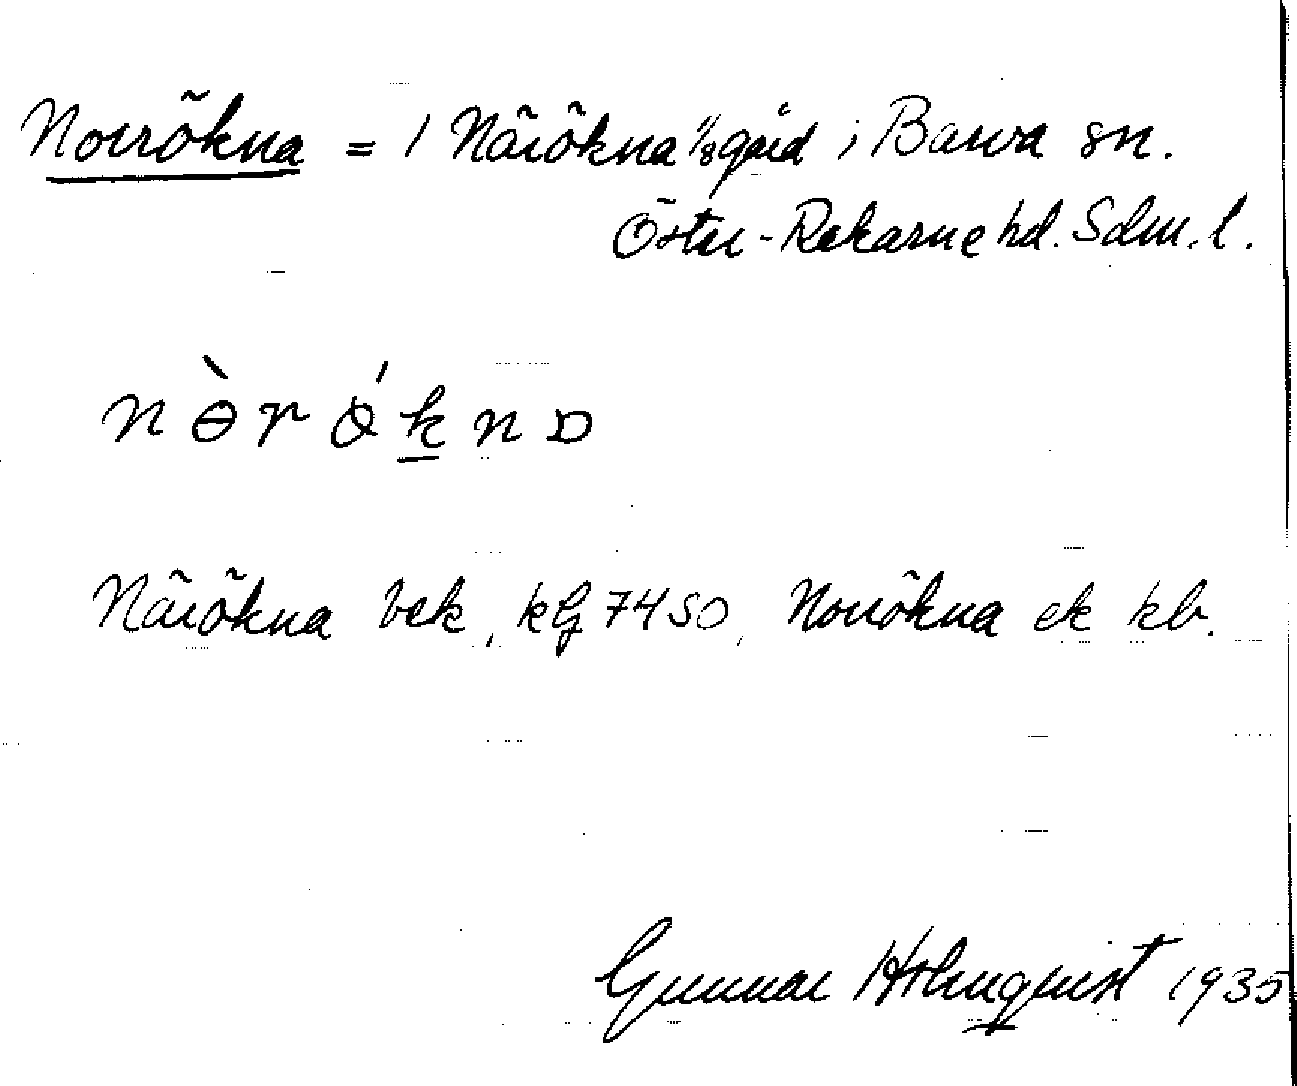 Norrökna = / Närökna 1/8 gård i Barva sn.
Öster-Rekarne hd. Sdm. l.
n ѳ̀ r ǿ k n ɒ
Närökna bek, kG 7450, Norrökna ek kb.
Gunnar Holmquist 1935